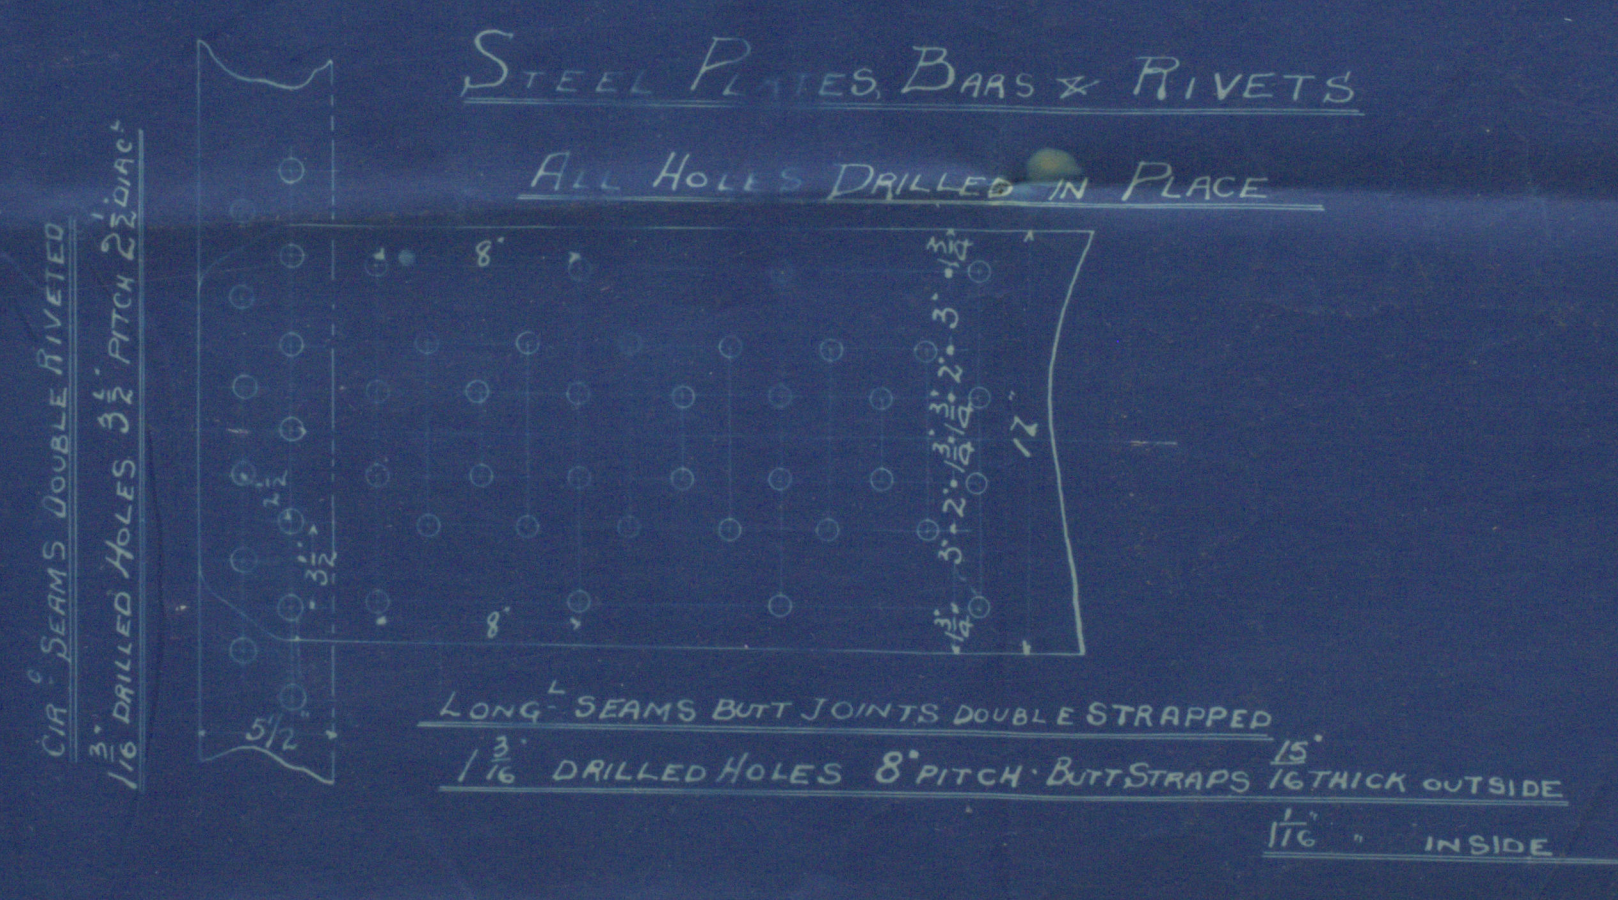 STEEL PLATES, BARS & RIVETS
ALL HOLES DRILLED IN PLACE
CIRᶜ SEAMS DOUBLE RIVETED
1 3/16" DRILLED HOLES 3 1/2" PITCH 2 1/2" DIAGᴸ
8"
1 3/4
3"
2"
1 3/4"
1 3/4"
2"
3"
1 3/4
17"
2 1/2
3 1/2"
8"
5 1/2"
LONGᴸ SEAMS BUTT JOINTS DOUBLE STRAPPED
1 3/16" DRILLED HOLES 8" PITCH · BUTT STRAPS 15/16" THICK OUTSIDE
1 1/16" " INSIDE